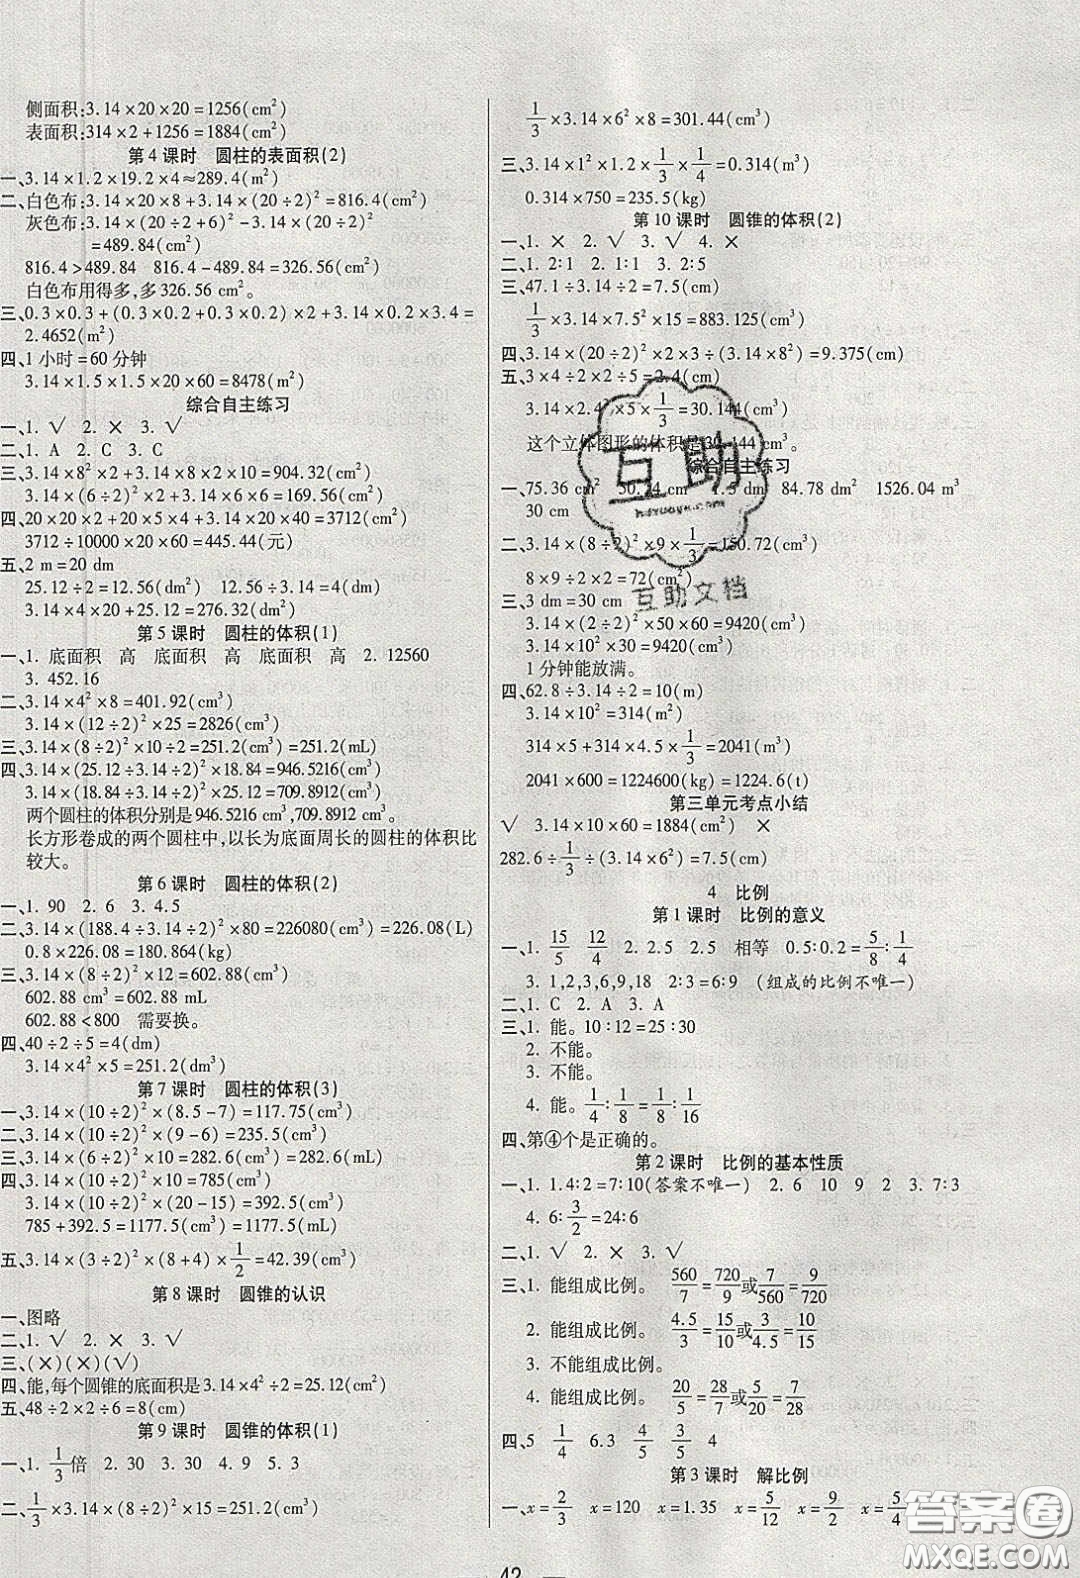 侧面积:3.14×20×20=1256(cm²)
表面积:314×2+1256=1884(cm²)
第4课时 圆柱的表面积(2)
一、3.14×1.2×19.2×4≈289.4(m²)
二、白色布:3.14×20×8+3.14×(20÷2)²=816.4(cm²)
灰色布:3.14×(20÷2+6)²-3.14×(20÷2)²
=489.84(cm²)
816.4>489.84 816.4-489.84=326.56(cm²)
白色布用得多,多326.56 cm²。
三、0.3×0.3+(0.3×0.3+0.3×0.2)×2+3.14×0.2×3.4=
2.4652(m²)
四、1小时=60分钟
3.14×1.5×1.5×20×60=8478(m²)
综合自主练习
一、1. √ 2. × 3. √
二、1. A 2. C 3. C
三、3.14×8²×2+3.14×8×2×10=904.32(cm²)
3.14×(6÷2)²×2+3.14×6×6=169.56(cm²)
四、20×20×2+20×5×4+20×30×4=3712(cm²)
3712÷10000×20×60=445.44(元)
五、2 m=20 dm
25.12÷2=12.56(dm²) 12.56÷3.14=4(dm)
3.14×4×20+25.12=276.32(dm²)
第5课时 圆柱的体积(1)
一、1. 底面积 高 底面积 高 底面积 高 2. 12560
3. 452.16
二、3.14×4²×8=401.92(cm³)
3.14×(12÷2)²×25=2826(cm³)
三、3.14×(8÷2)²×10÷2=251.2(cm³)=251.2(mL)
四、3.14×(25.12÷3.14÷2)²×18.84=946.5216(cm³)
3.14×(18.84÷3.14÷2)²×25.12=709.8912(cm³)
两个圆柱的体积分别是946.5216 cm³,709.8912 cm³。
长方形卷成的两个圆柱中,以长为底面周长的圆柱的体积比
较大。
第6课时 圆柱的体积(2)
一、1. 90 2. 6 3. 4.5
二、3.14×(188.4÷3.14÷2)²×80=226080(cm³)=226.08(L)
0.8×226.08=180.864(kg)
三、3.14×(8÷2)²×12=602.88(cm³)
602.88 cm³=602.88 mL
602.88<800 需要换。
四、40÷2÷5=4(dm)
3.14×4²×5=251.2(dm³)
第7课时 圆柱的体积(3)
一、3.14×(10÷2)²×(8.5-7)=117.75(cm³)
二、3.14×(10÷2)²×(9-6)=235.5(cm³)
三、3.14×(6÷2)²×10=282.6(cm³)=282.6(mL)
四、3.14×(10÷2)²×10=785(cm³)
3.14×(10÷2)²×(20-15)=392.5(cm³)
785+392.5=1177.5(cm³)=1177.5(mL)
五、3.14×(3÷2)²×(8+4)×1/2=42.39(cm³)
第8课时 圆锥的认识
一、图略
二、1. √ 2. × 3. √
三、(×)(×)(√)
四、能,每个圆锥的底面积是3.14×4²÷2=25.12(cm²)
五、48÷2×2÷6=8(cm)
第9课时 圆锥的体积(1)
一、1. 1/3倍 2. 30 3. 30 4. 9 5. 3
二、1/3×3.14×(8÷2)²×15=251.2(cm³)
1/3×3.14×6²×8=301.44(cm³)
三、3.14×1²×1.2×1/3×1/4=0.314(m³)
0.314×750=235.5(kg)
第10课时 圆锥的体积(2)
一、1. × 2. √ 3. √ 4. ×
二、1. 2:1 2. 1:2 3. 2:5
三、47.1÷3.14÷2=7.5(cm)
1/3×3.14×7.5²×15=883.125(cm³)
四、3.14×(20÷2)²×2×3÷(3.14×8²)=9.375(cm)
五、3×4÷2×2÷5=2.4(cm)
3.14×2.4²×5×1/3=30.144(cm³)
这个立体图形的体积是30.144 cm³。
综合自主练习
一、75.36 cm² 50.24 cm² 1.5 dm 84.78 dm² 1526.04 m³
30 cm
二、3.14×(8÷2)²×9×1/3=150.72(cm³)
8×9÷2×2=72(cm²)
三、3 dm=30 cm
3.14×(2÷2)²×50×60=9420(cm³)
3.14×10²×30=9420(cm³)
1分钟能放满。
四、62.8÷3.14÷2=10(m)
3.14×10²=314(m²)
314×5+314×4.5×1/3=2041(m³)
2041×600=1224600(kg)=1224.6(t)
第三单元考点小结
√ 3.14×10×60=1884(cm²) ×
282.6÷1/3÷(3.14×6²)=7.5(cm)
4 比例
第1课时 比例的意义
一、1. 15/5 12/4 2. 2.5 2.5 相等 0.5:0.2=5/8:1/4
3. 1,2,3,6,9,18 2:3=6:9 (组成的比例不唯一)
二、1. C 2. A 3. A
三、1. 能。10:12=25:30
2. 不能。
3. 不能。
4. 能。1/4:1/8=1/8:1/16
四、第④个是正确的。
第2课时 比例的基本性质
一、1. 1.4:2=7:10(答案不唯一) 2. 6 10 9 2 3. 7:3
4. 6:3/2=24:6
二、1. √ 2. × 3. √
三、1. 能组成比例。560/7=720/9或7/560=9/720
2. 能组成比例。4.5/3=15/10或3/4.5=10/15
3. 不能组成比例。
4. 能组成比例。20/5=28/7或5/20=7/28
四、5 1/4 6.3 3/5 4
第3课时 解比例
一、x=2/3 x=120 x=1.35 x=5/12 x=9/2 x=5/4
42
互助
互助文档
答案圈
MXQE.COM